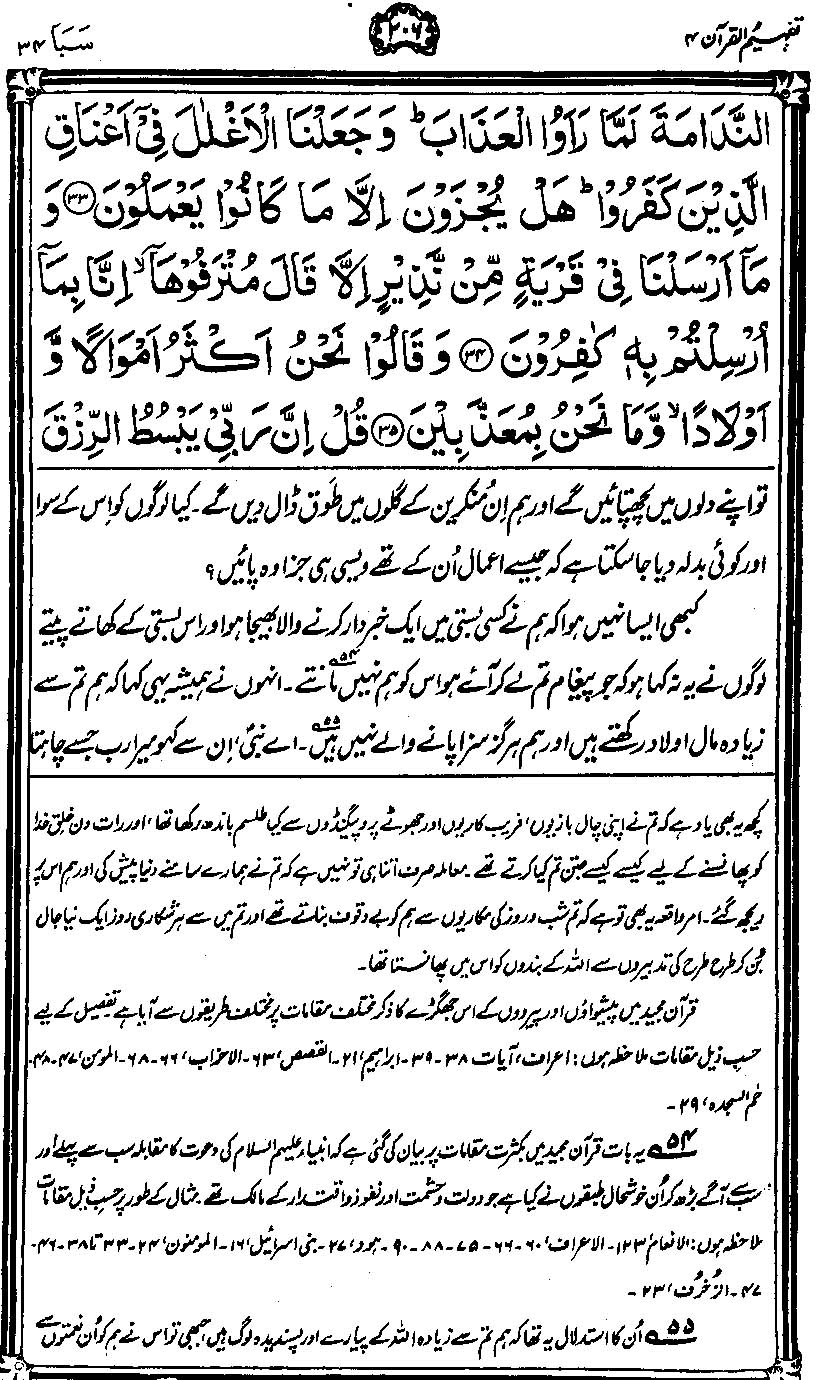 تفہیم القرآن ۴
۲۰۶
سَبَا ۳۴
النَّدَامَةَ لَمَّا رَاَوُا الْعَذَابَ ؕ وَ جَعَلْنَا الْاَغْلٰلَ فِیْۤ اَعْنَاقِ
الَّذِیْنَ كَفَرُوْا ؕ هَلْ یُجْزَوْنَ اِلَّا مَا كَانُوْا یَعْمَلُوْنَ ﴿۳۳﴾ وَ
مَاۤ اَرْسَلْنَا فِیْ قَرْیَةٍ مِّنْ نَّذِیْرٍ اِلَّا قَالَ مُتْرَفُوْهَاۤ ۙ اِنَّا بِمَاۤ
اُرْسِلْتُمْ بِهٖ كٰفِرُوْنَ ﴿۳۴﴾ وَ قَالُوْا نَحْنُ اَكْثَرُ اَمْوَالًا وَّ
اَوْلَادًا ۙ وَّمَا نَحْنُ بِمُعَذَّبِیْنَ ﴿۳۵﴾ قُلْ اِنَّ رَبِّیْ یَبْسُطُ الرِّزْقَ
تو اپنے دلوں میں پچھتائیں گے اور ہم اِن منکرین کے گلوں میں طَوق ڈال دیں گے۔ کیا لوگوں کو اِس کے سوا
اور کوئی بدلہ دیا جا سکتا ہے کہ جیسے اعمال اُن کے تھے ویسی ہی جزا وہ پائیں؟
کبھی ایسا نہیں ہوا کہ ہم نے کسی بستی میں ایک خبردار کرنے والا بھیجا ہو اور اس بستی کے کھاتے پیتے
لوگوں نے یہ نہ کہا ہو کہ جو پیغام تم لے کر آئے ہو اس کو ہم نہیں مانتے۵۴۔ انہوں نے ہمیشہ یہی کہا کہ ہم تم سے
زیادہ مال اولاد رکھتے ہیں اور ہم ہرگز سزا پانے والے نہیں ہیں۵۵۔ اے نبیؐ، اِن سے کہو میرا رب جسے چاہتا
کچھ یہ بھی یاد ہے کہ تم نے اپنی چال بازیوں، فریب کاریوں اور جھوٹے پروپیگنڈوں سے کیا طلسم باندھ رکھا تھا، اور رات دن خلقِ خدا
کو پھانسنے کے لیے کیسے کیسے جتن تم کیا کرتے تھے۔ معاملہ صرف اتنا ہی تو نہیں ہے کہ تم نے ہمارے سامنے دنیا پیش کی اور ہم اس پر
ریجھ گئے۔ امر واقعہ یہ بھی تو ہے کہ تم شب و روز کی مکاریوں سے ہم کو بے وقوف بناتے تھے اور تم میں سے ہر شکاری روز ایک نیا جال
بُن کر طرح طرح کی تدبیروں سے اللہ کے بندوں کو اس میں پھانستا تھا۔
قرآن مجید میں پیشواؤں اور پیرووں کے اس جھگڑے کا ذکر مختلف مقامات پر مختلف طریقوں سے آیا ہے تفصیل کے لیے
حسبِ ذیل مقامات ملاحظہ ہوں: اعراف، آیات ۳۸-۳۹۔ ابراہیم، ۲۱۔ القصص، ۶۳۔ الاحزاب، ۶۶-۶۸۔ المومن، ۴۷-۴۸۔
حٰم السجدہ، ۲۹۔
۵۴ یہ بات قرآن مجید میں بکثرت مقامات پر بیان کی گئی ہے کہ انبیاء علیہم السلام کی دعوت کا مقابلہ سب سے پہلے اور
سب سے آگے بڑھ کر اُن خوشحال طبقوں نے کیا ہے جو دولت و حشمت اور نفوذ و اقتدار کے مالک تھے۔ مثال کے طور پر حسبِ ذیل مقامات
ملاحظہ ہوں: الانعام، ۱۲۳۔ الاعراف، ۶۰-۶۶-۷۵-۸۸-۹۰۔ ہود، ۲۷۔ بنی اسرائیل، ۱۶۔ المومنون، ۲۴-۳۳ تا ۳۸-۴۶-
۴۷۔ الزُخرُف، ۲۳۔
۵۵ اُن کا استدلال یہ تھا کہ ہم تم سے زیادہ اللہ کے پیارے اور پسندیدہ لوگ ہیں، جبھی تو اس نے ہم کو اُن نعمتوں سے